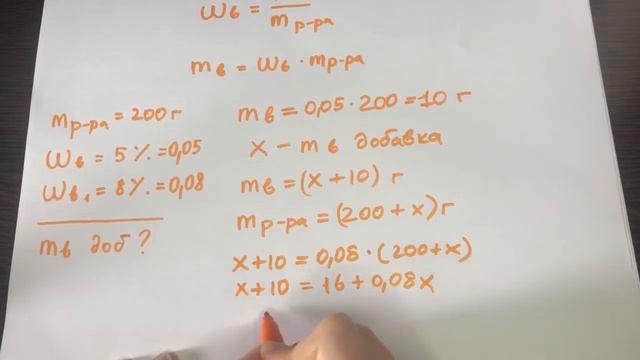 ωв = 
mр-ра
mв = ωв · mр-ра
mр-ра = 200 г
ωв = 5 %. = 0,05
ωв₁ = 8 %. = 0,08
mв доб ?
mв = 0,05 · 200 = 10 г
x - mв добавка
mв = (x + 10) г
mр-ра = (200 + x) г
x + 10 = 0,08 · (200 + x)
x + 10 = 16 + 0,08x